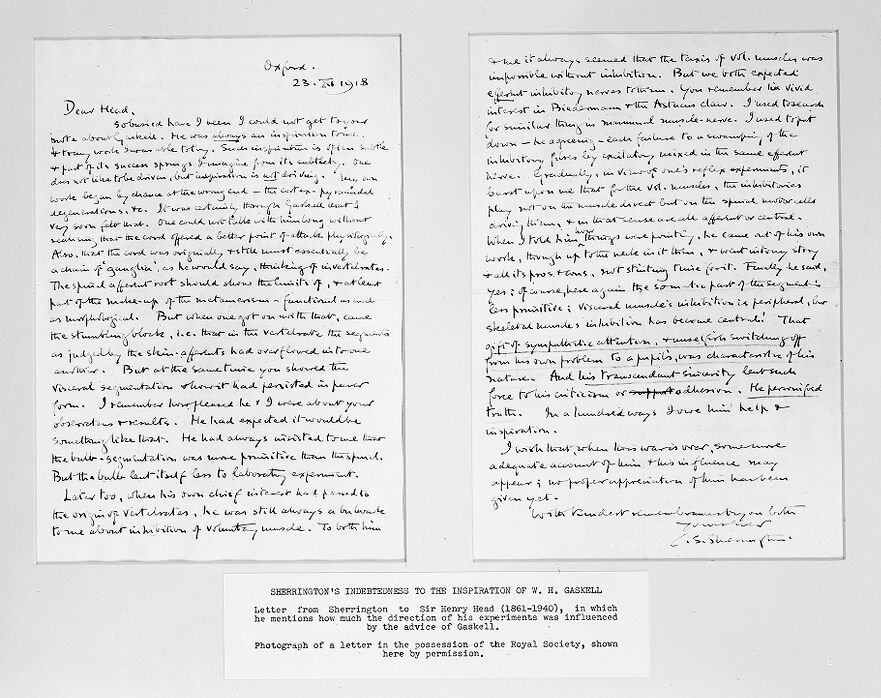 Oxford.
23. XI 1918
Dear Head.
So busied have I been I could not get to your
note about Gaskell. He was always an inspiration to me,
& to any work I was able to try. Such inspiration is often subtle
& part of its success springs I imagine from its subtlety. One
does not like to be driven, but inspiration is not driving. My own
work began by chance at the wrong end – the cortex – pyramidal
degenerations, &c. It was certainly through Gaskell that I
very soon felt that. One could not talk with him long without
realising that the cord offered a better point of attack physiologically.
Also, that the cord was originally & still must essentially be
a chain of 'ganglia', as he would say, thinking of invertebrates.
The spinal afferent root should show the limits of, & at least
part of the make-up of the metamerism – functional as well
as morphological. But when one got on with that, came
the stumbling block, i.e. that in the vertebrate the segments
as judged by the skin-afferents had overflowed into one
another. But at the same time you showed the
visceral segmentation where it had persisted in purer
form. I remember how pleased he & I were about your
observations & results. He had expected it would be
something like that. He had always insisted to me that
the bulb-segmentation was more primitive than the spinal.
But the bulb lent itself less to laboratory experiment.
Later too, when his own chief interest had passed to
the origin of vertebrates, he was still always a bulwark
to me about inhibition of voluntary muscle. To both him
& me it always seemed that the taxis of vol. muscles was
impossible without inhibition. But we both expected
efferent inhibitory nerves to them. You remember his vivid
interest in Biedermann & the Astacus claw. I used to search
for similar thing in mammal muscle-nerve. I used to put
down – he agreeing – each failure to a swamping of the
inhibitory fibres by excitatory mixed in the same efferent
nerve. Gradually, in view of one's reflex experiments, it
burst upon me that for the vol. muscles, the inhibitories
play not on the muscle direct but on the spinal motor cells
driving them, & in that sense are all afferent or central.
When I told him how things were pointing, he came out of his own
work, though up to the neck in it then, & went into my story
& all its pros & cons, not stinting time for it. Finally he said,
'yes; of course, here again the somatic part of the segment is
less primitive; visceral muscle's inhibition is peripheral, but
skeletal muscle's inhibition has become central.' That
gift of sympathetic attention, & unselfish switching off
from his own problem to a pupil's, was characteristic of his
nature. And his transcendant sincerity lent such
force to his criticism or support adhesion. He personified
truth. In a hundred ways I owe him help &
inspiration.
I wish that when this war is over, some more
adequate account of him & his influence may
appear; no proper appreciation of him has been
given yet.
With kindest remembrances to you both
Yours ever
C. S. Sherrington.
SHERRINGTON'S INDEBTEDNESS TO THE INSPIRATION OF W. H. GASKELL
Letter from Sherrington to Sir Henry Head (1861-1940), in which
he mentions how much the direction of his experiments was influenced
by the advice of Gaskell.
Photograph of a letter in the possession of the Royal Society, shown
here by permission.